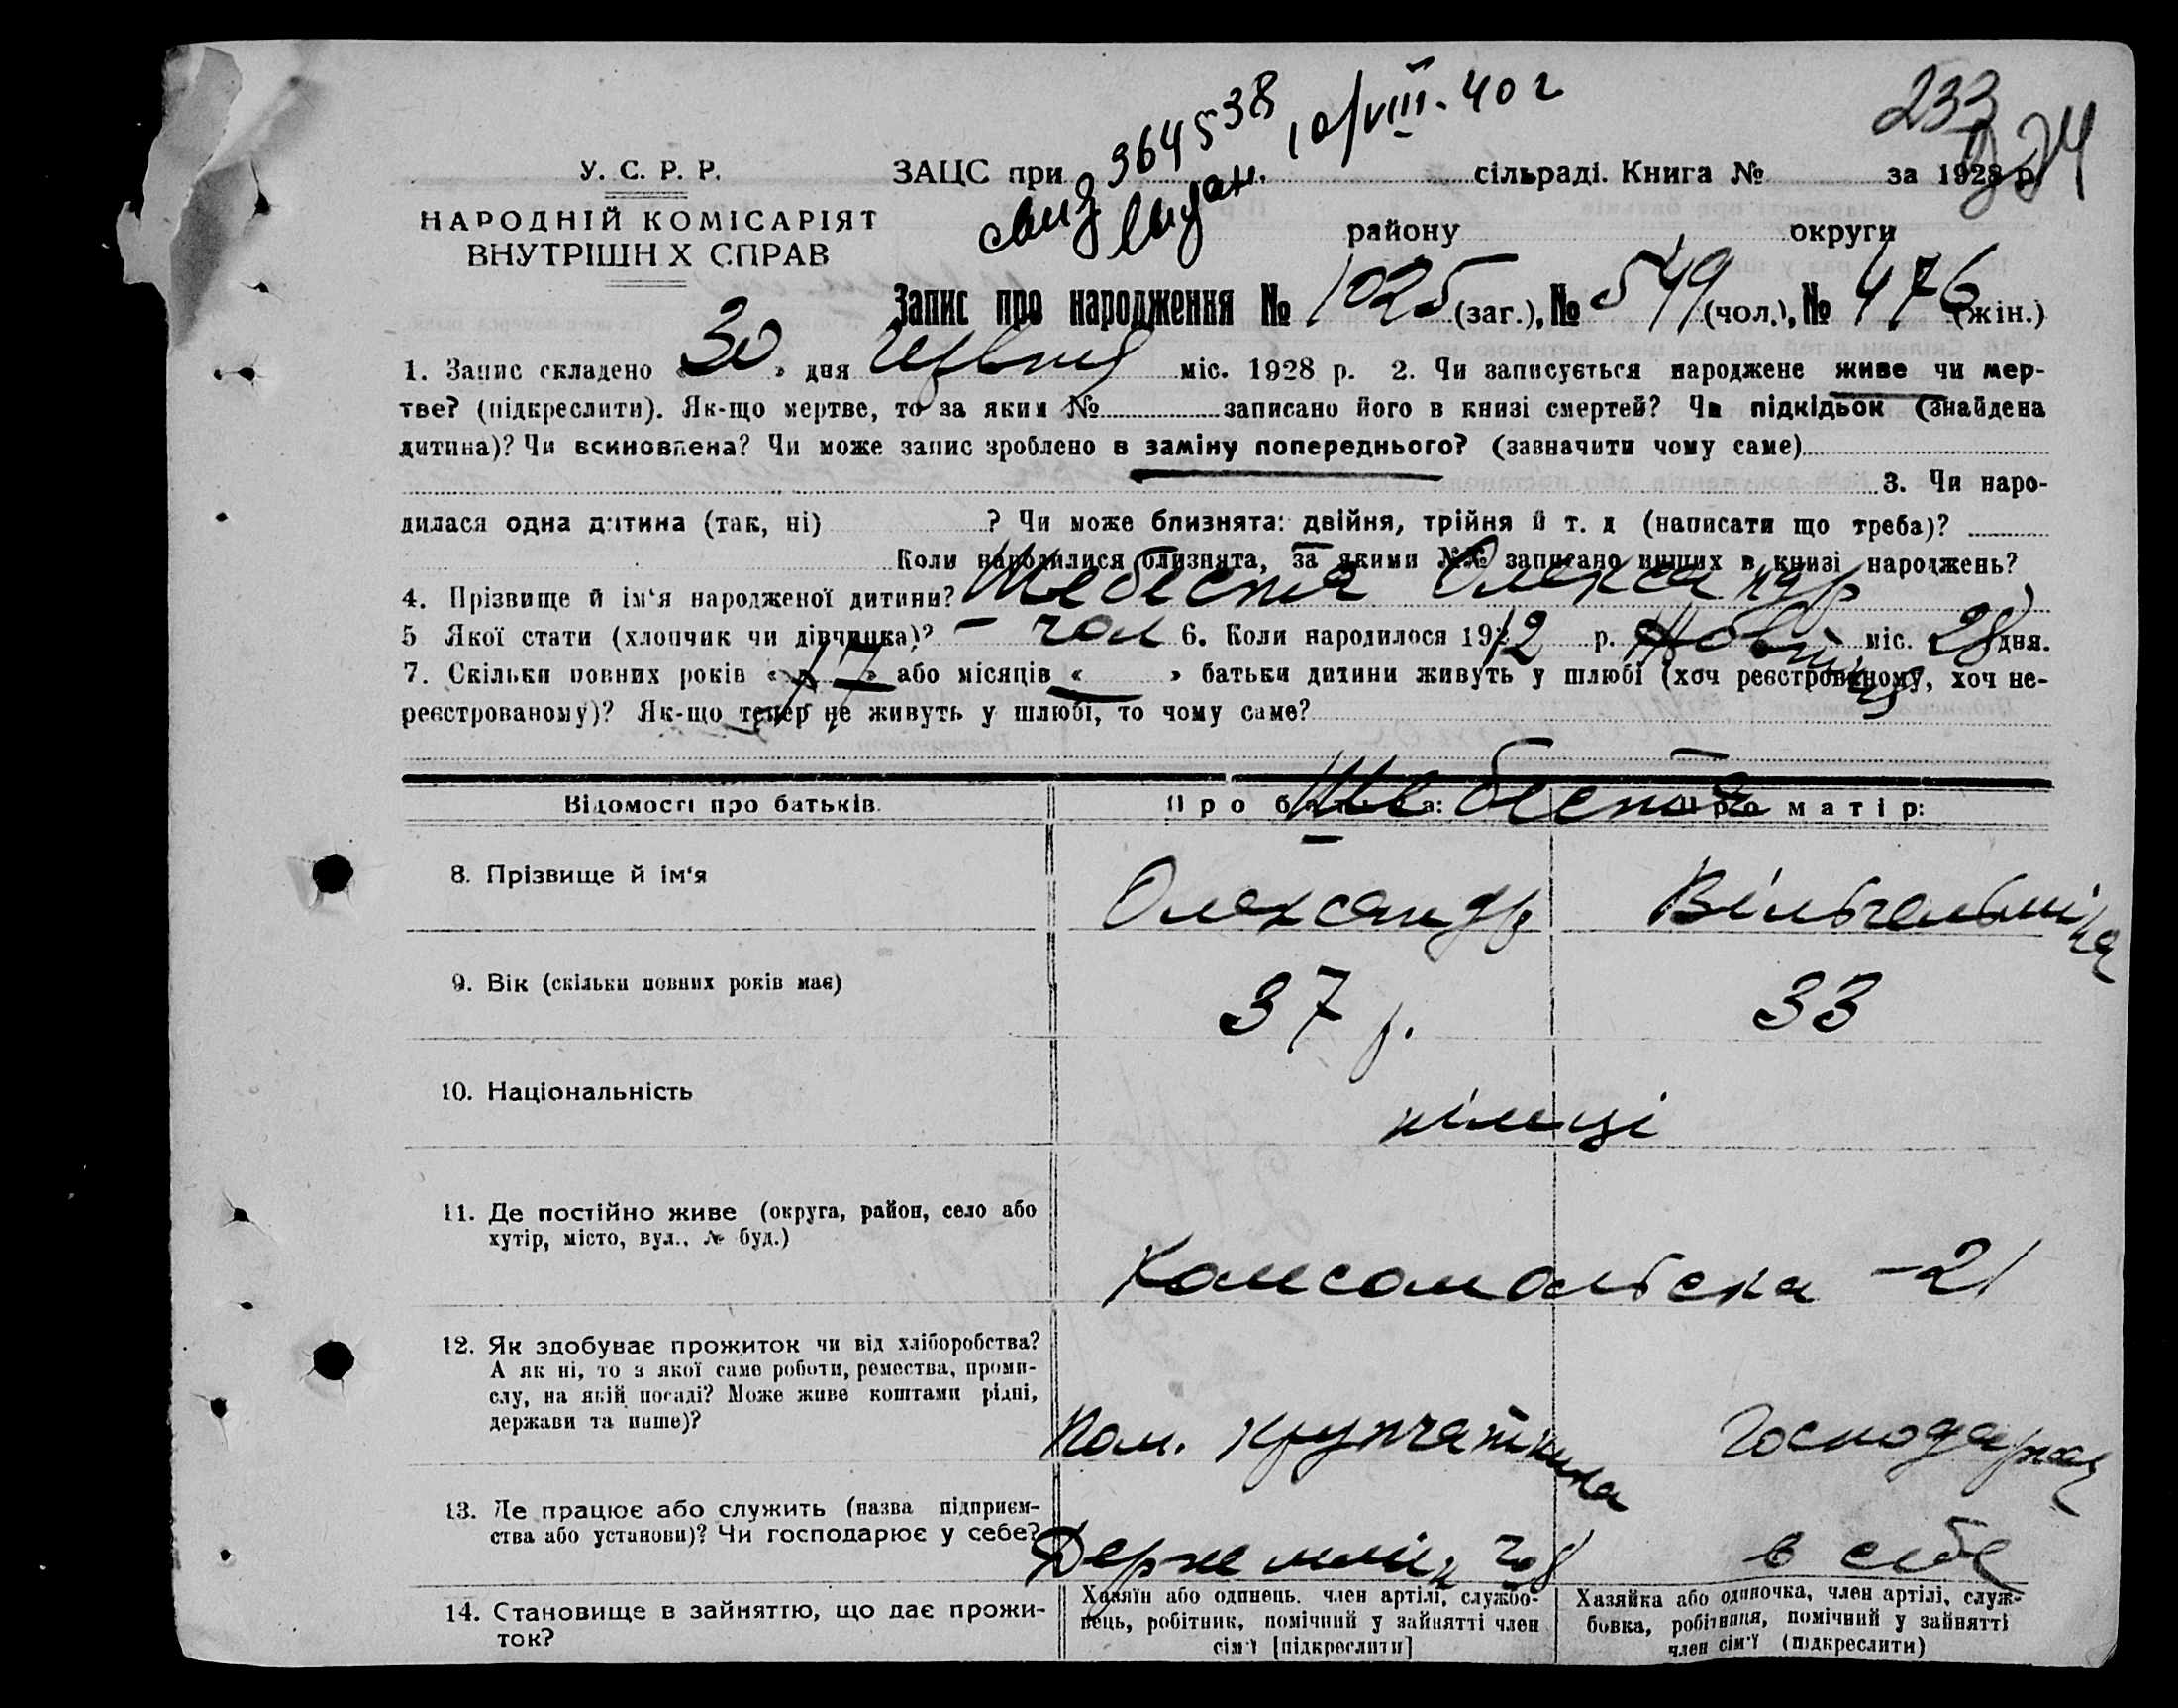 233
364538 10/VIII-40 г
У. С. Р. Р. ЗАЦС при сільраді. Книга № за 1928 р.
НАРОДНІЙ КОМІСАРІЯТ
ВНУТРІШН Х СПРАВ
району округи
Запис про народження № 1025 (заг.), № 549 (чол.), № 476 (жін.)
1. Запис складено « 30 » дня червня міс. 1928 р. 2. Чи записується народжене живе чи мер-
тве? (підкреслити). Як-що мертве, то за яким № записано його в книзі смертей? Чи підкідьок (знайдена
дитина)? Чи всиновлена? Чи може запис зроблено в заміну попереднього? (зазначити чому саме)
3. Чи наро-
дилася одна дитина (так, ні) ? Чи може близнята: двійня, трійня й т. д (написати що треба)?
Коли народилися близнята, за якими №№ записано инших в книзі народжень?
4. Прізвище й ім‘я народженої дитини? Олександр
5 Якої стати (хлопчик чи дівчинка)? – чол 6. Коли народилося 1912 р. Жовтня міс. 28 дня.
7. Скільки повних років « 17 » або місяців « » батьки дитини живуть у шлюбі (хоч реєстрованому, хоч не-
реєстрованому)? Як-що тепер не живуть у шлюбі, то чому саме?
Відомості про батьків. Про батька: Про матір:
8. Прізвище й ім‘я Олександр Вільгельміна
9. Вік (скільки повних років має) 37 р. 33
10. Національність німці
11. Де постійно живе (округа, район, село або
хутір, місто, вул., № буд.)
Комсомольска – 21
12. Як здобуває прожиток чи від хліборобства?
А як ні, то з якої саме роботи, ремества, проми-
слу, на якій посаді? Може живе коштами рідні,
держави та инше)?
Пом. крупчатника Господарка
13. Де працює або служить (назва підприєм-
ства або установи)? Чи господарює у себе?
Держ млин в себе
14. Становище в зайняттю, що дає прожи-
ток?
Хазяїн або одинець. член артілі, службо-
вець, робітник, помічний у зайнятті член
сім‘ї [підкреслити]
Хазяйка або одиночка, член артілі, служ-
бовка, робітниця, помічний у зайнятті
член сім‘ї (підкреслити)